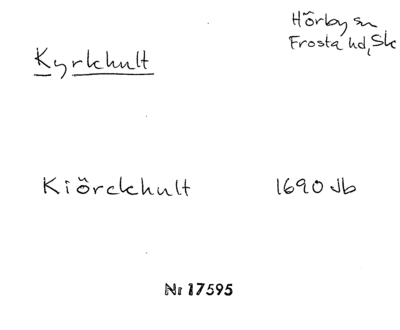 Hörby sn
Frosta hd, Sk
Kyrkhult
Kiörckhult 1690 Jb
Nr 17595